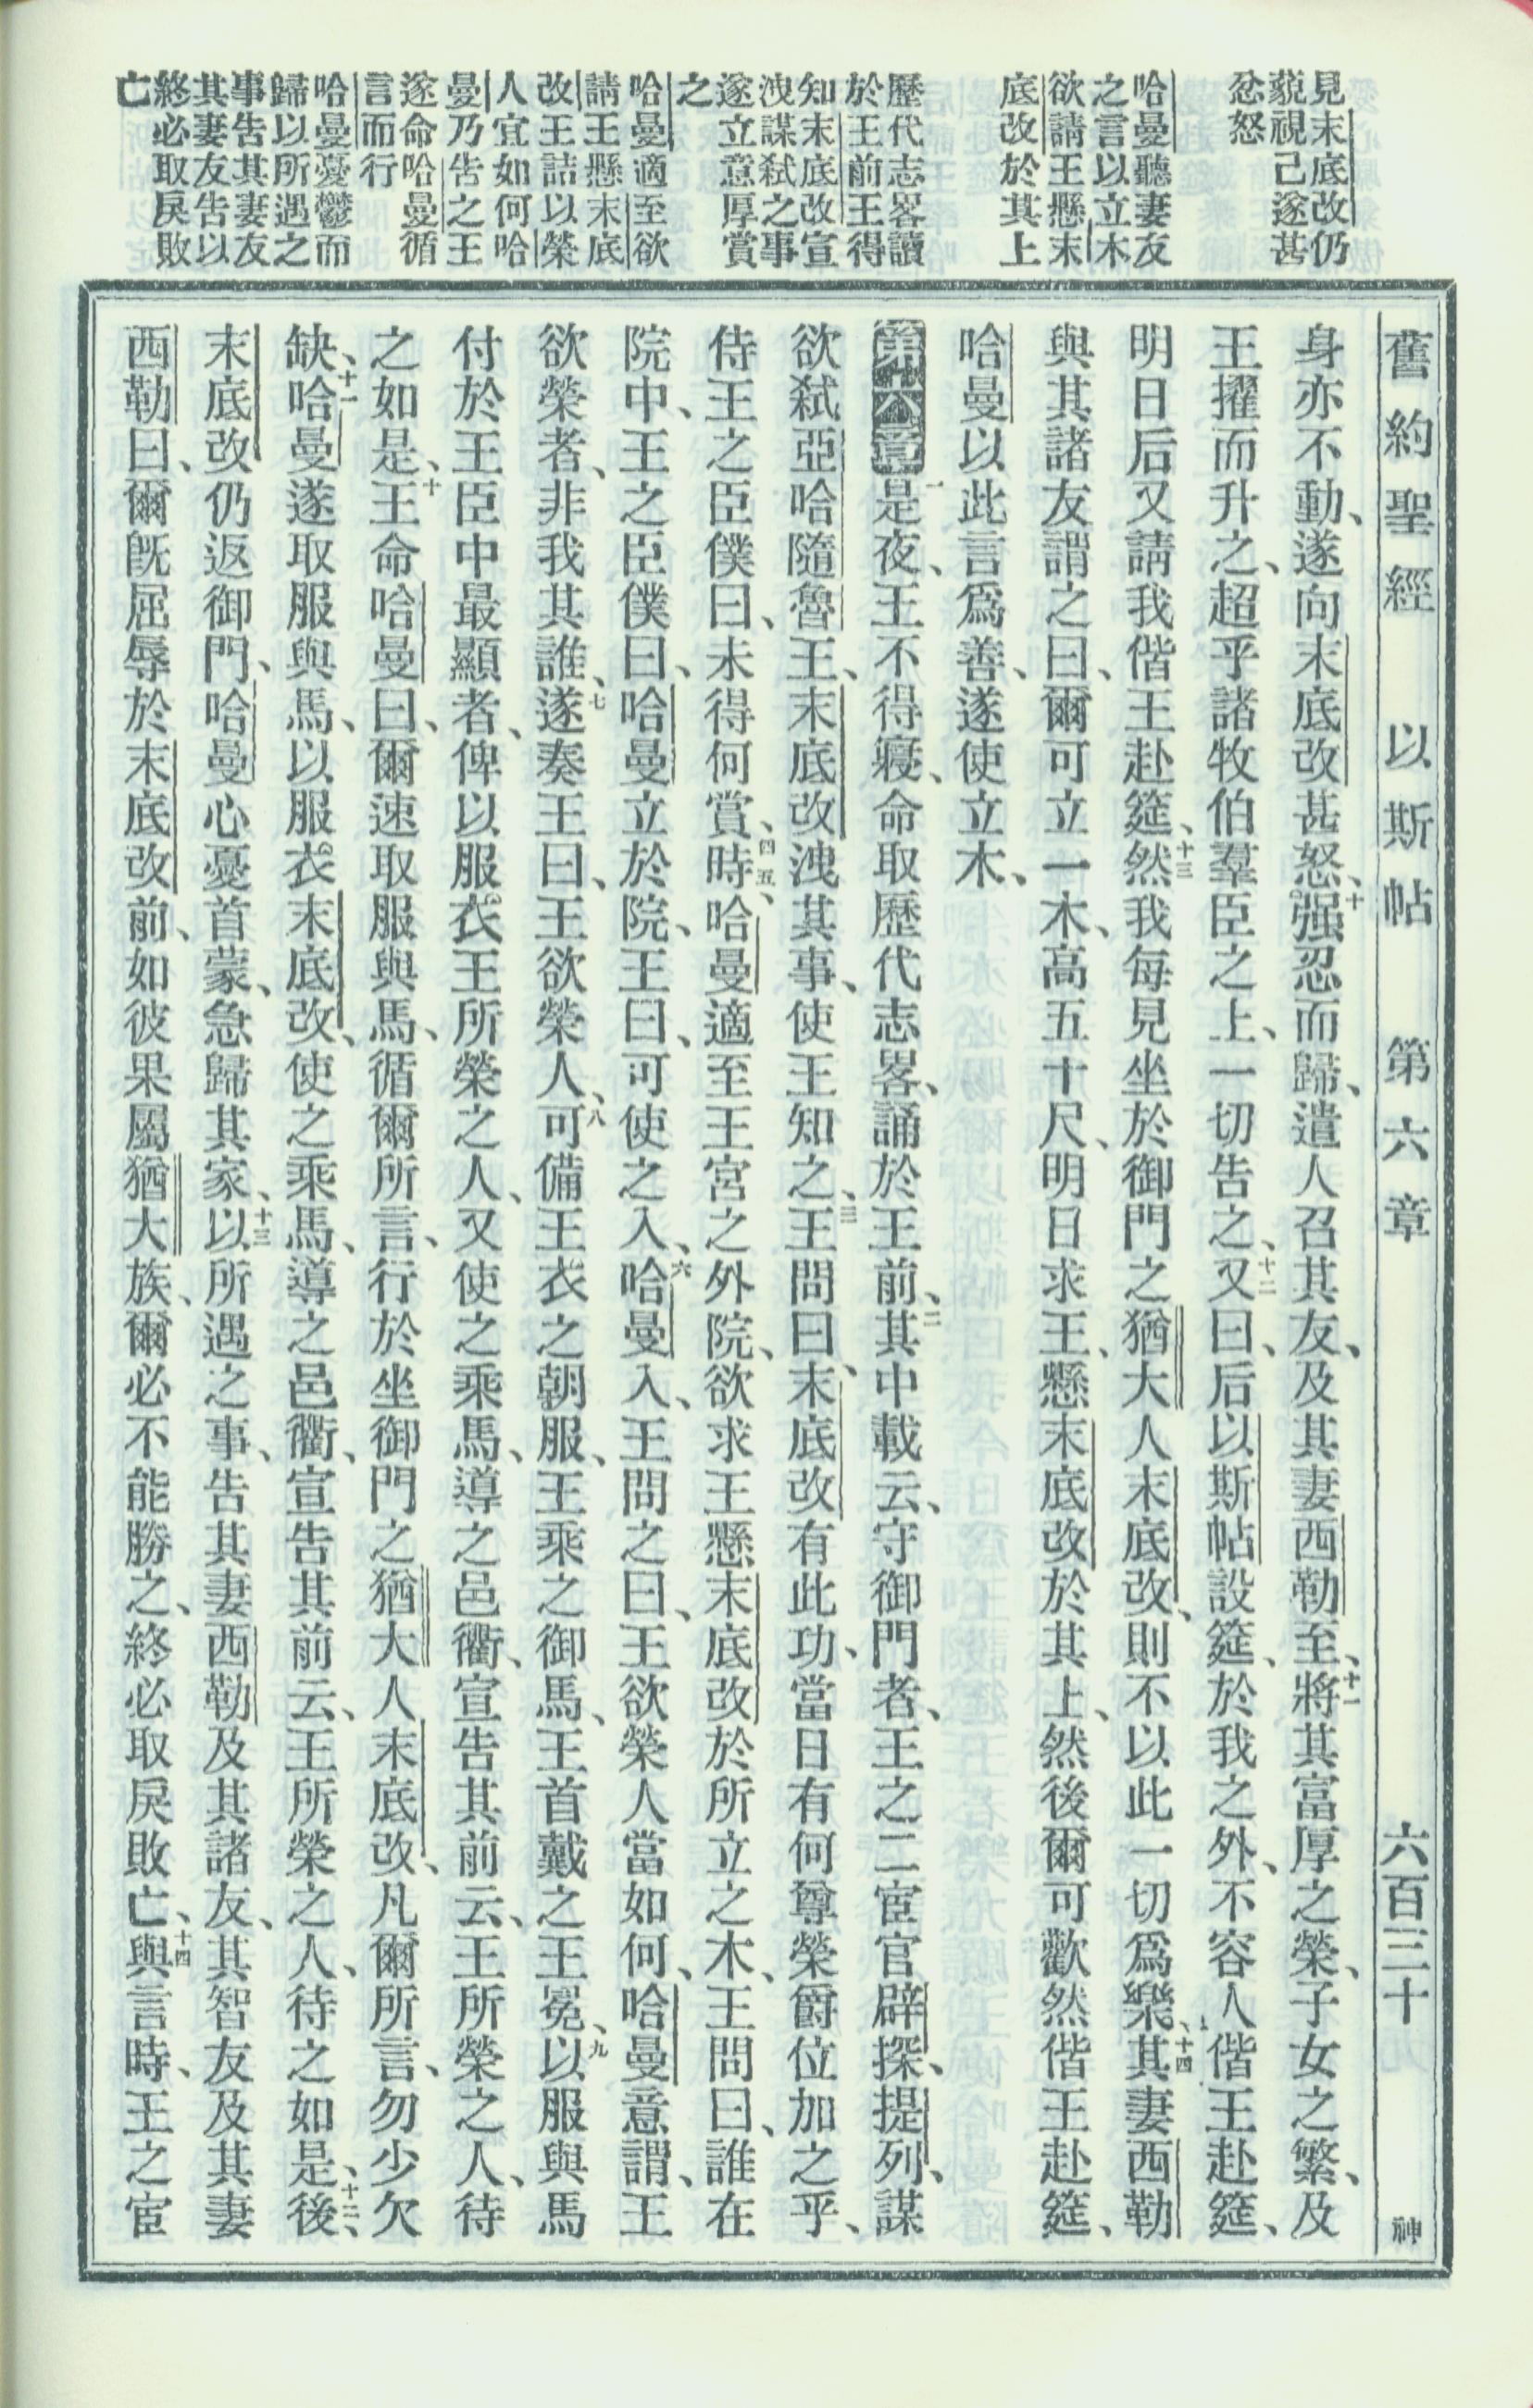 舊約聖經　以斯帖　第六章　六百三十　神
見末底改仍
藐視己遂甚
忿怒
哈曼聽妻友
之言以立木
欲請王懸末
底改於其上
歷代志畧讀
於王前王得
知末底改宣
洩謀弒之事
遂立意厚賞
之
哈曼適至欲
請王懸末底
改王詰以榮
人宜如何哈
曼乃告之王
遂命哈曼循
言而行
哈曼憂鬱而
歸以所遇之
事告其妻友
其妻友告以
終必取戾敗
亡
身亦不動、遂向末底改甚怒、十强忍而歸、遣人召其友、及其妻西勒至、十一將其富厚之榮、子女之繁、及
王擢而升之、超乎諸牧伯羣臣之上、一切告之、十二又曰、后以斯帖設筵、於我之外、不容人偕王赴筵、
明日后又請我偕王赴筵、十三然我每見坐於御門之猶大人末底改、則不以此一切爲樂、十四其妻西勒
與其諸友謂之曰、爾可立一木、高五十尺、明日求王、懸末底改於其上、然後爾可歡然偕王赴筵、
哈曼以此言爲善、遂使立木、
第六章一是夜、王不得寢、命取歷代志畧、誦於王前、二其中載云、守御門者、王之二宦官辟探、提列、謀
欲弒亞哈隨魯王、末底改洩其事、使王知之、三王問曰、末底改有此功、當日有何尊榮爵位加之乎、
侍王之臣僕曰、未得何賞、四五時、哈曼適至王宮之外院、欲求王懸末底改於所立之木、王問曰、誰在
院中、王之臣僕曰、哈曼立於院、王曰、可使之入、六哈曼入、王問之曰、王欲榮人當如何、哈曼意謂、王
欲榮者、非我其誰、七遂奏王曰、王欲榮人、八可備王衣之朝服、王乘之御馬、王首戴之王冕、九以服與馬
付於王臣中最顯者、俾以服衣王所榮之人、又使之乘馬、導之邑衢、宣告其前云、王所榮之人、待
之如是、十王命哈曼曰、爾速取服與馬、循爾所言、行於坐御門之猶大人末底改、凡爾所言、勿少欠
缺、十一哈曼遂取服與馬、以服衣末底改、使之乘馬、導之邑衢、宣告其前云、王所榮之人、待之如是、十二後、
末底改仍返御門、哈曼心憂首蒙、急歸其家、十三以所遇之事、告其妻西勒及其諸友、其智友及其妻
西勒曰、爾旣屈辱於末底改前、如彼果屬猶大族、爾必不能勝之、終必取戾敗亡、十四與言時、王之宦